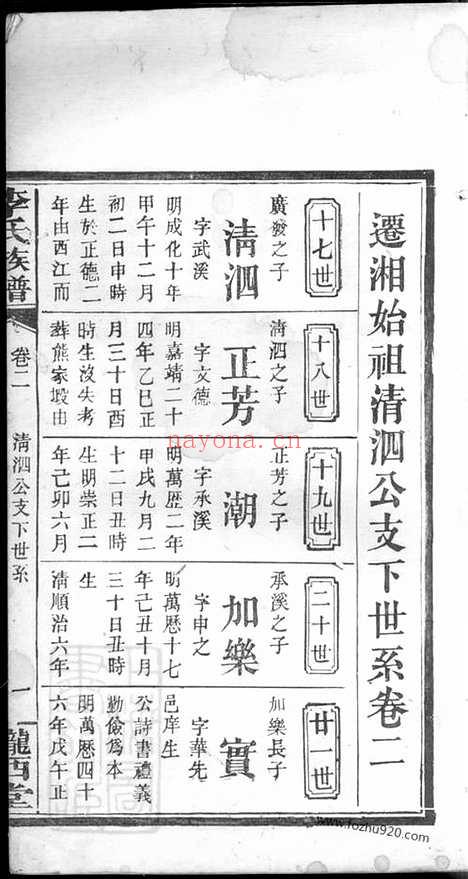 遷湘始祖清泗公支下世系卷二
十七世
廣發之子
清泗
字武溪
明成化十年
甲午十二月
初二日申時
生於正德二
年由西江而
十八世
清泗之子
正芳
字文德
明嘉靖二十
四年乙巳正
月三十日酉
時生沒失考
葬熊家塅由
十九世
正芳之子
潮
字承溪
明萬歷二年
甲戌九月二
十二日丑時
生明崇正二
年己卯六月
二十世
承溪之子
加樂
字申之
明萬歷十七
年己丑十月
三十日丑時
生
清順治六年
廿一世
加樂長子
實
字華先
邑庠生
公詩書禮義
勤儉為本
明萬歷四十
六年戊午正
李氏族譜
卷二
清泗公支下世系
一
隴西堂
nayona.cn
www.fozhu920.com